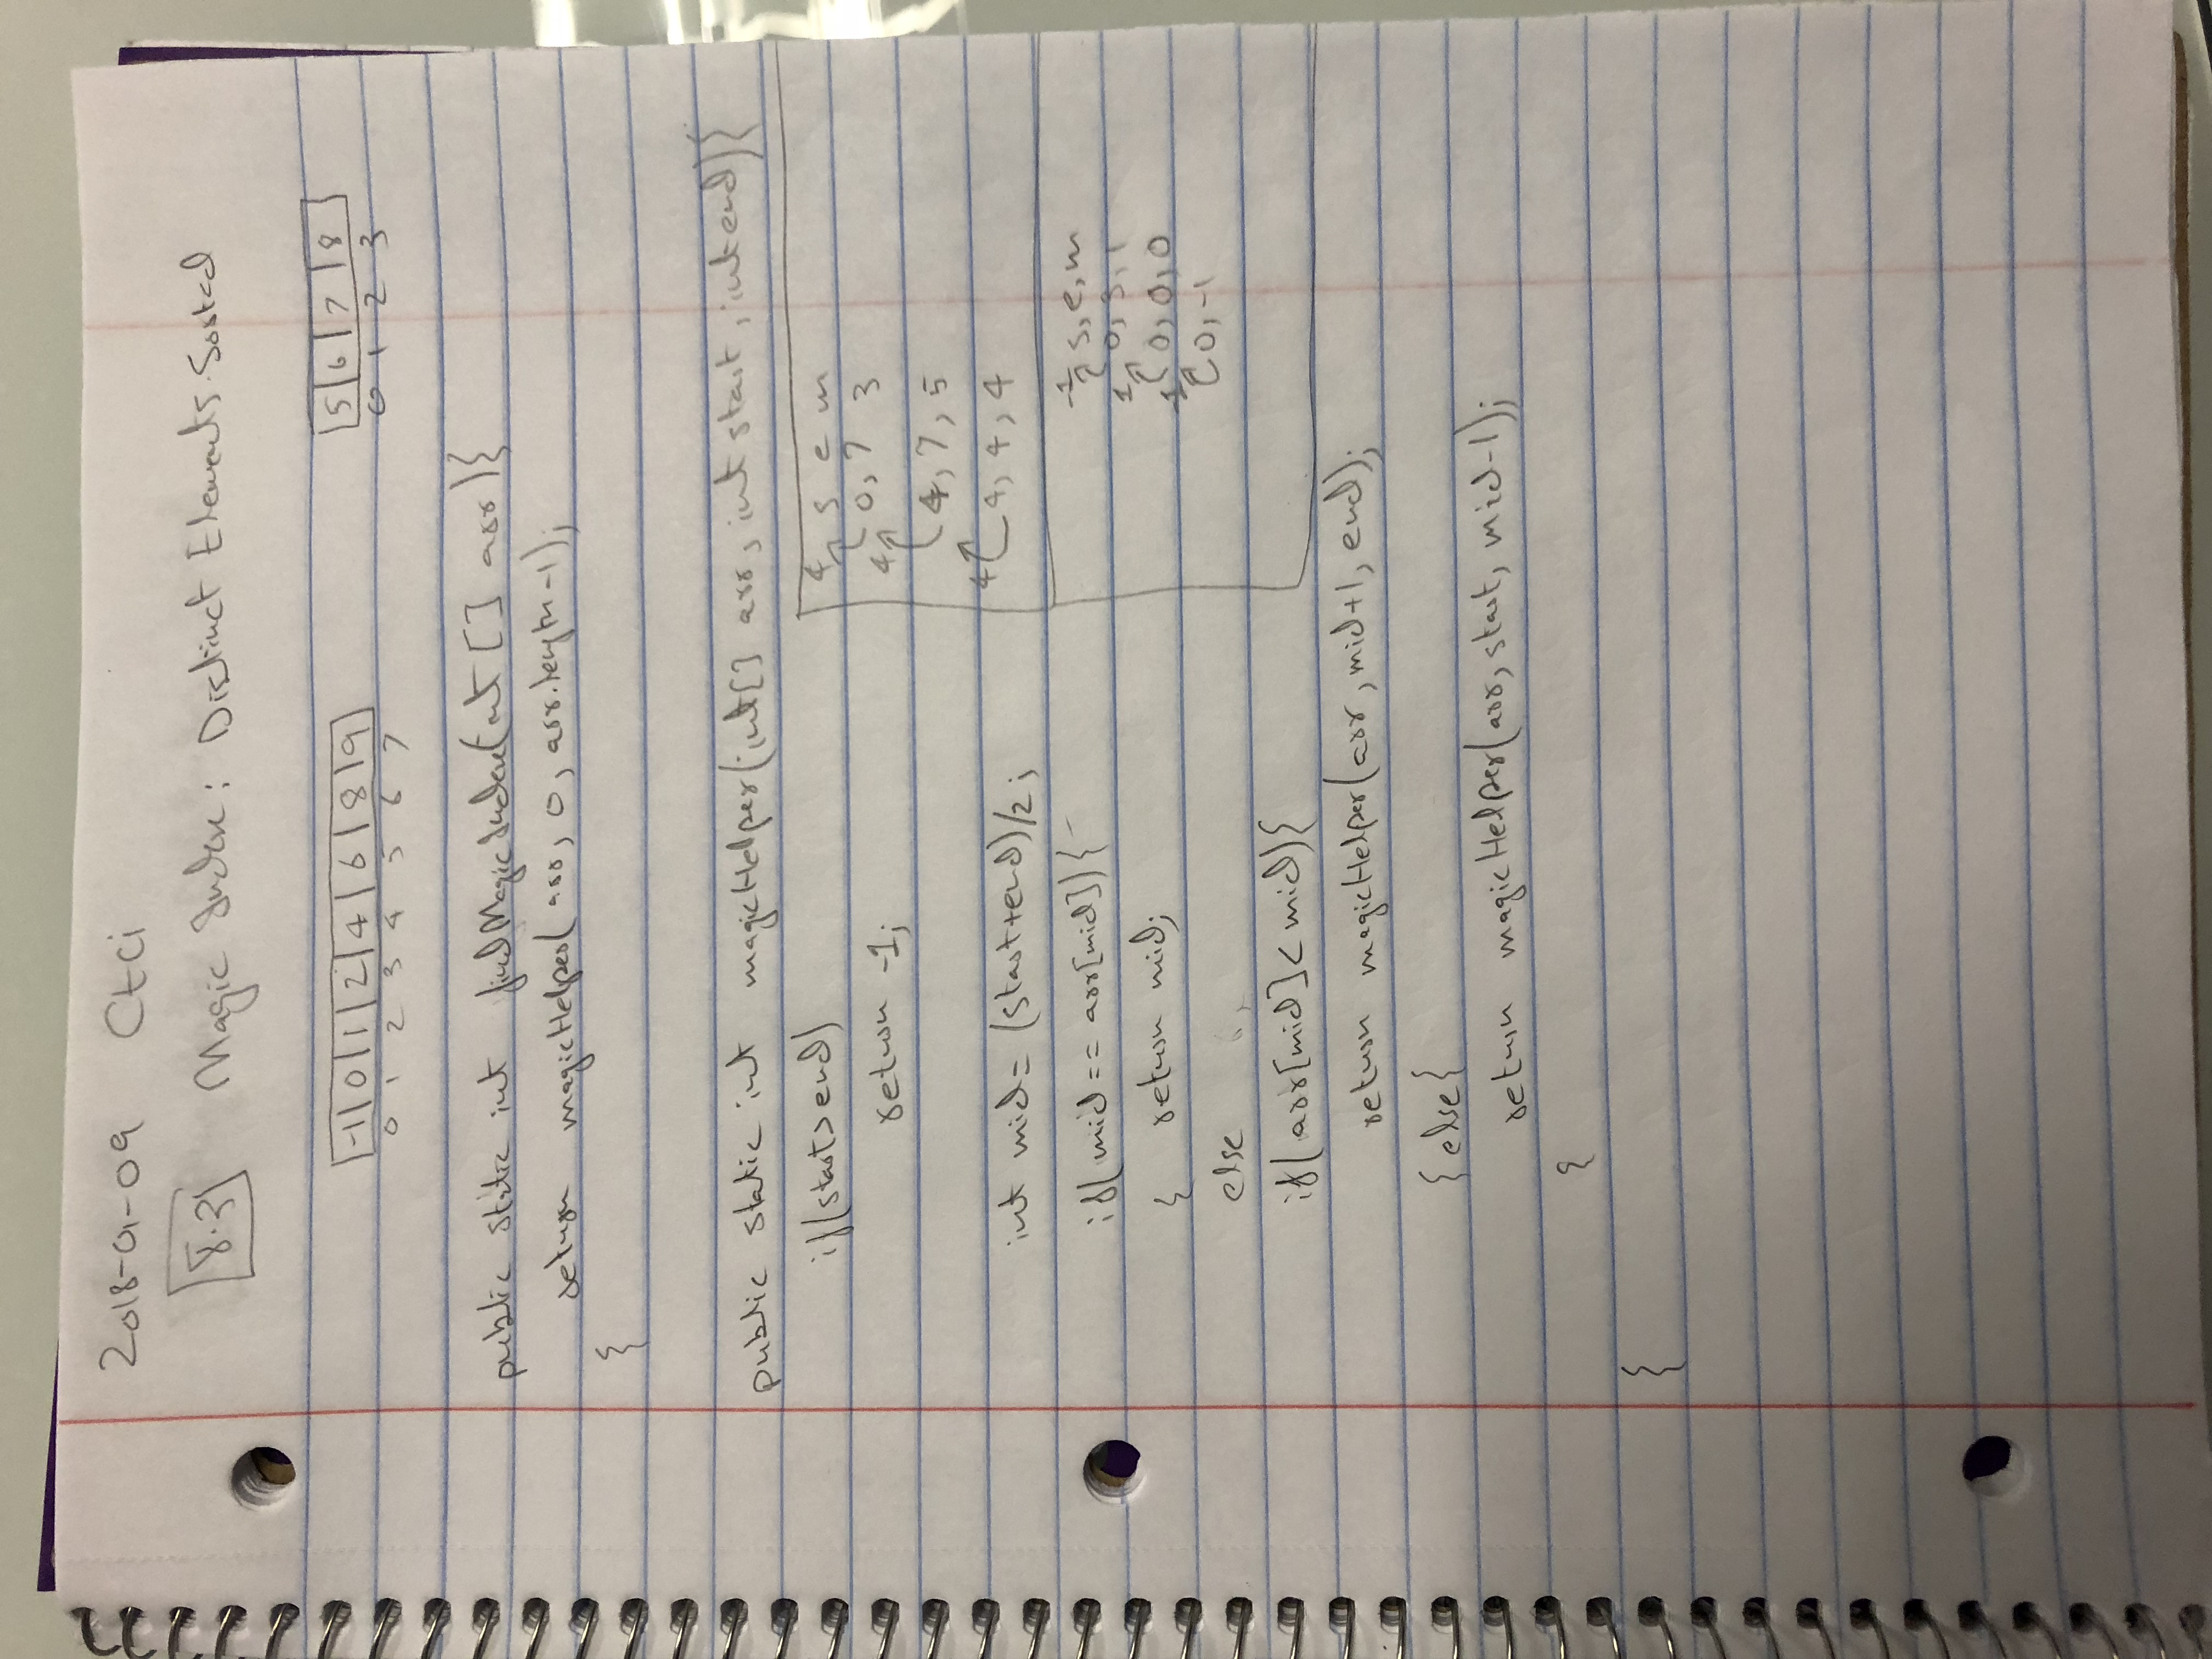 2018-01-09 CtCi
8.3 Magic Index: Distinct Elements. Sorted
-1 0 1 2 4 6 8 9
0 1 2 3 4 5 6 7
5 6 7 8
0 1 2 3
public static int findMagicIndex(int [] arr){
return magicHelper( arr, 0, arr.length-1);
{
public static int magicHelper(int[] arr, int start, int end){
if(start>end)
return -1;
int mid= (start+end)/2;
if( mid == arr[mid]){
{ return mid;
else
if( arr[mid]< mid){
return magicHelper(arr, mid+1, end);
{ else{
return magicHelper(arr, start, mid-1);
{
{
4 s e m
0, 7 3
4
4, 7, 5
4 4, 4, 4
-1 s, e, m
0, 3, 1
1 0, 0, 0
-1 0, -1